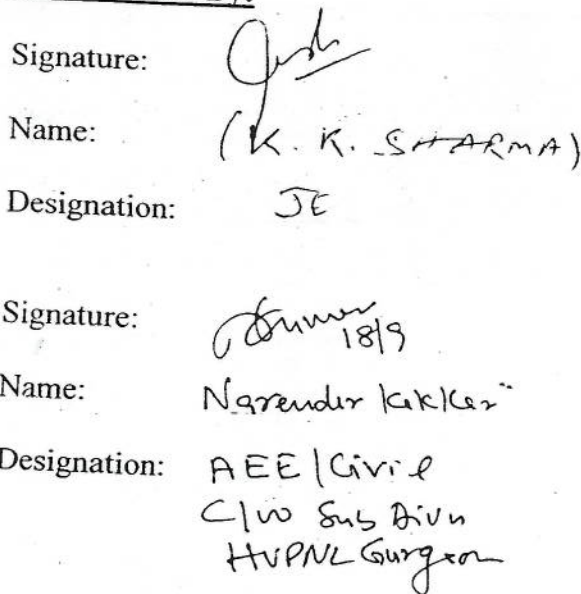 Signature:
Name: (K. K. SHARMA)
Designation: JE
Signature: 18/9
Name: Narender
Designation: AEE/Civil
C/W Sub Divn
HVPNL Gurgaon